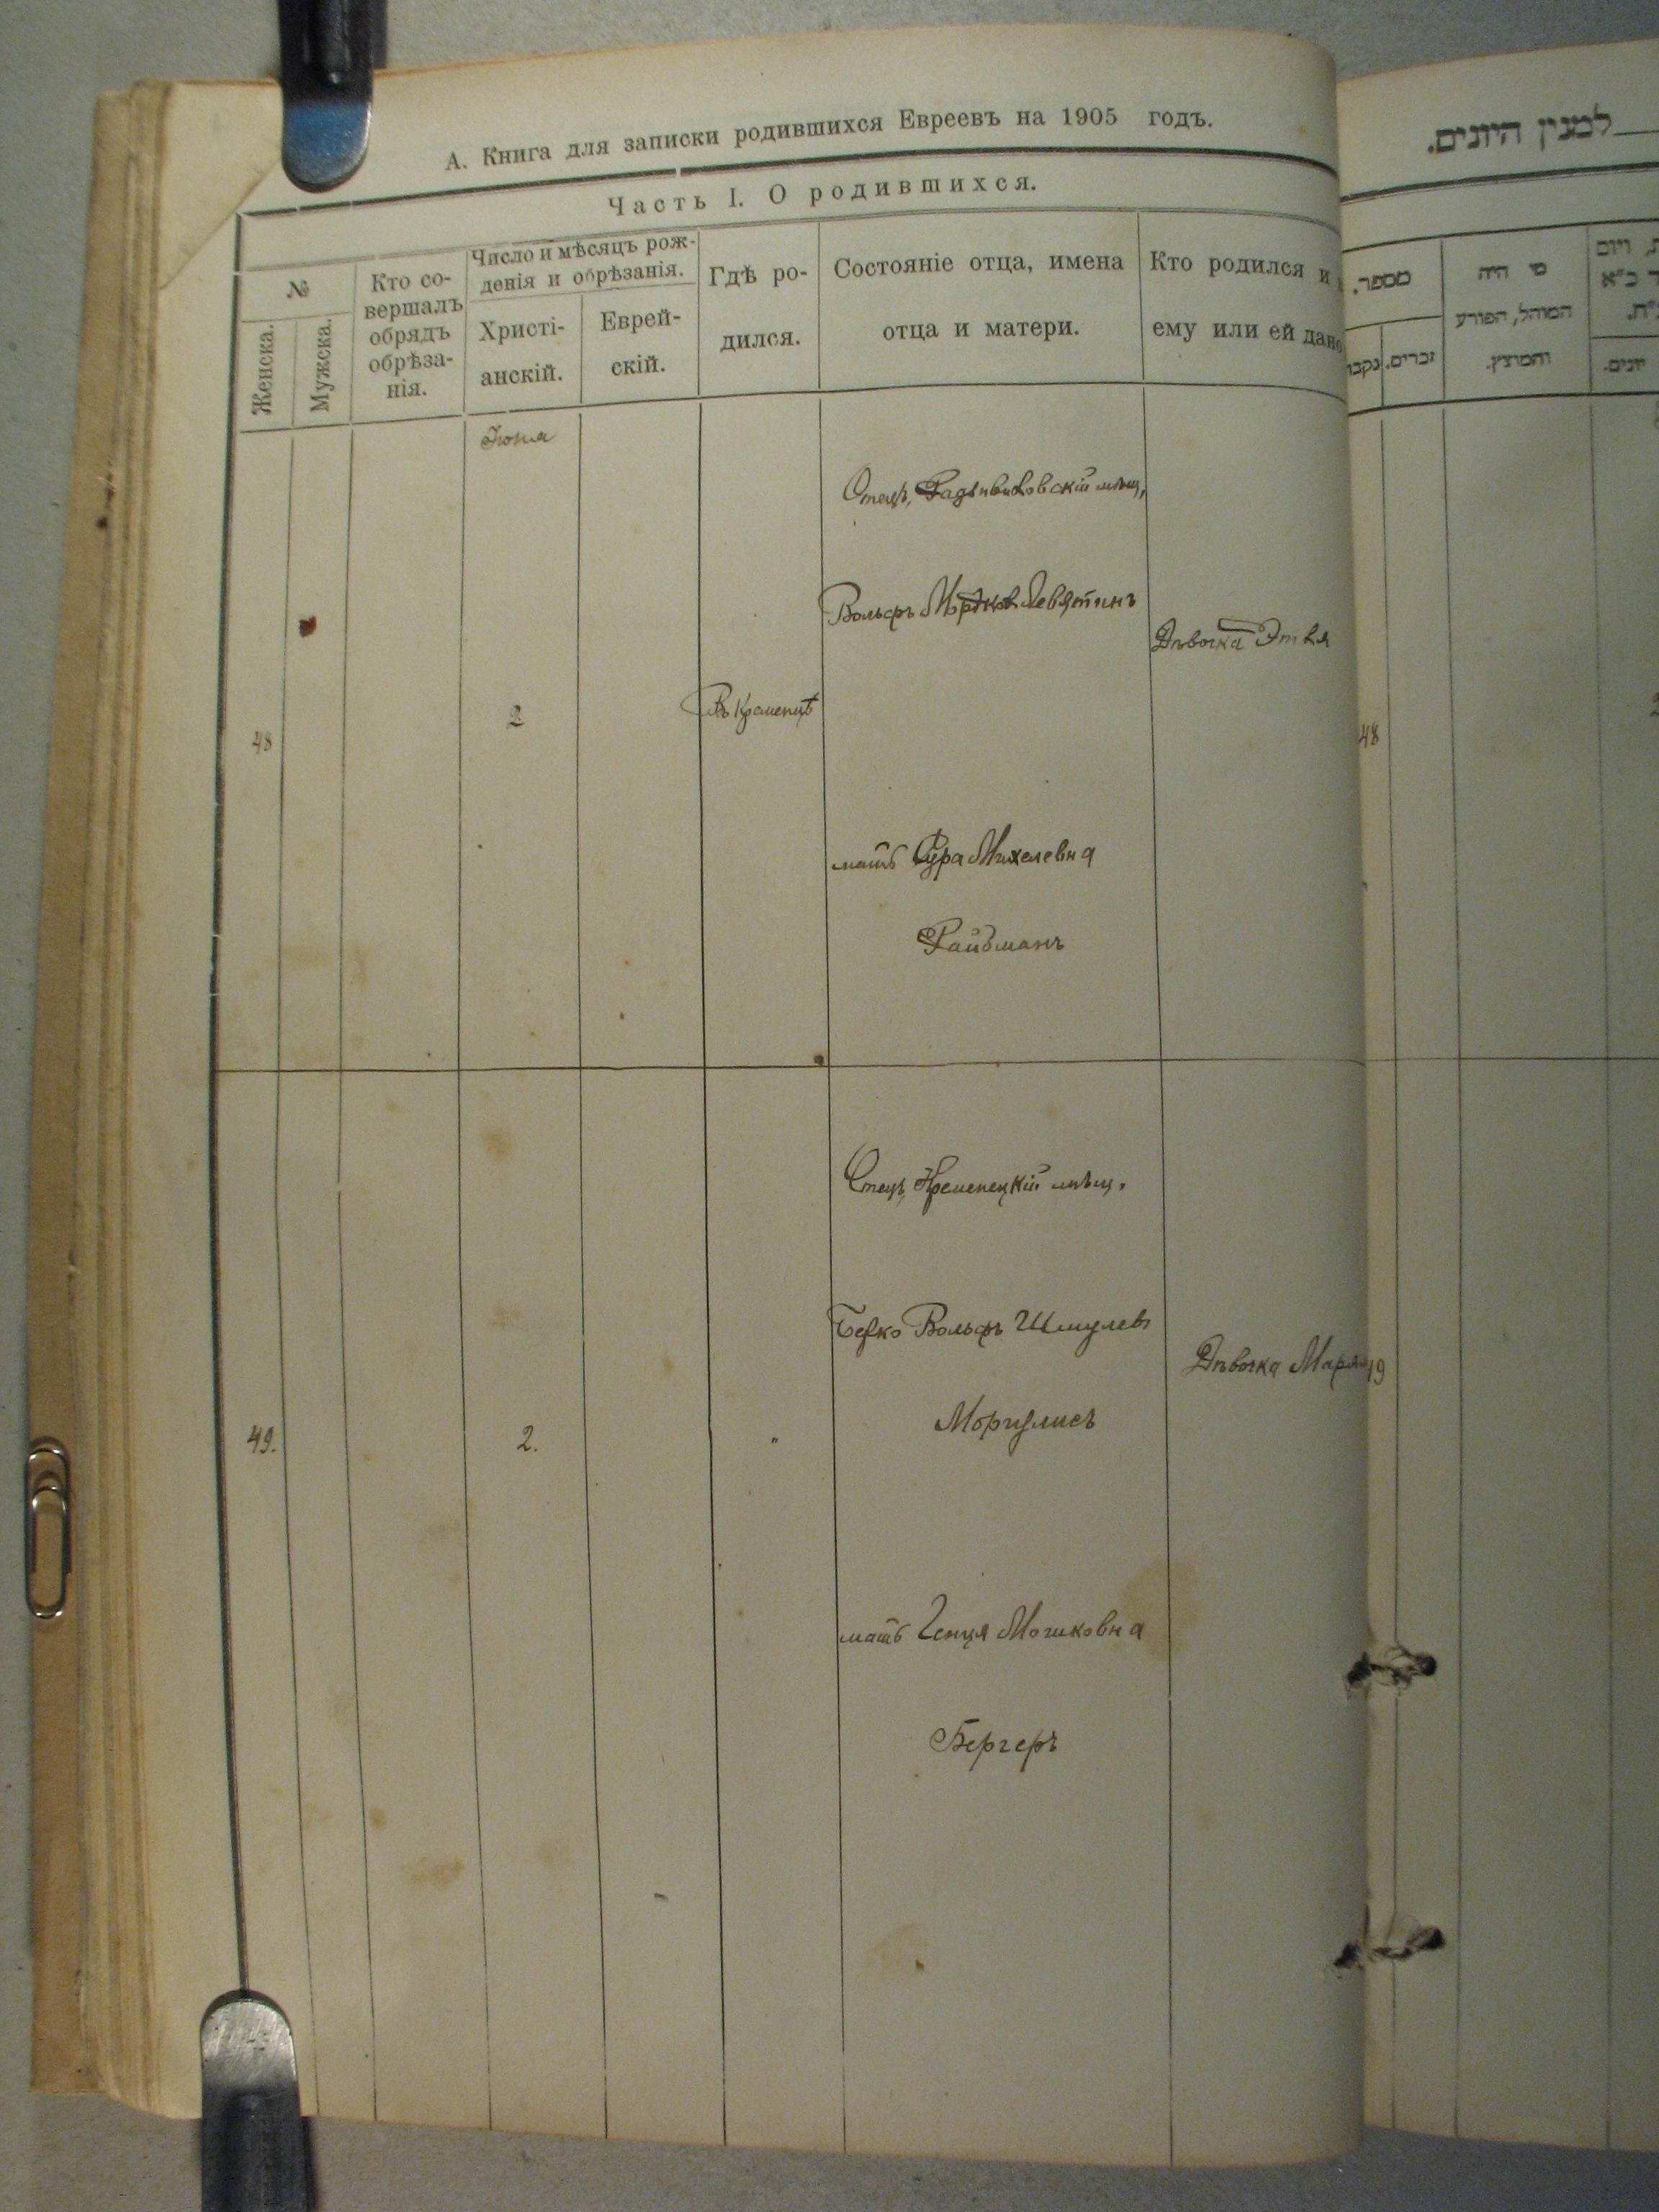 А. Книга для записки родившихся Евреевъ на 1905 годъ.
Часть I. О родившихся.
№
Женска.
Мужска.
Кто со-
вершалъ
обрядъ
обрѣза-
нія.
Число и мѣсяцъ рож-
денія и обрѣзанія.
Христі-
анскій.
Еврей-
скій.
Гдѣ ро-
дился.
Состояніе отца, имена
отца и матери.
Кто родился и
ему или ей дано
48
2
Въ Кременцѣ
Отецъ,
Вольфъ Левятинъ
мать Сура Михелевна
Райзманъ
Дѣвочка Этля
49.
2.
"
Отецъ, Кременецкій мѣщ.
Берко Вольфъ Шмулевъ
Моргулисъ
мать Генця Мошковна
Бергеръ
Дѣвочка
למנין היונים.
מספר.
זכרים.
מי היה
המוהל, הפורע
והמוצץ.
יונים.
48
49